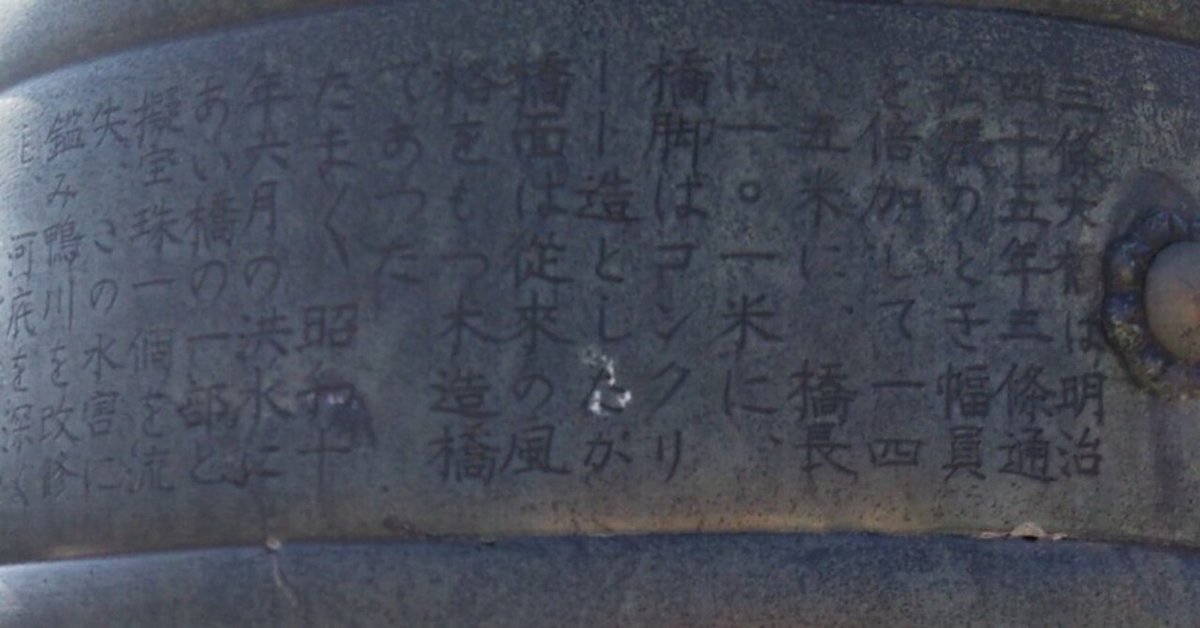 三條大橋は明治
四十五年三條通
拡張のとき幅員
を倍加して一四
、五米に、橋長
は一〇一米に、
橋脚はコンクリ
ート造としたが
橋面は従来の風
格をもつ木造橋
であつた
たまく 昭和十
年六月の洪水に
あい橋の一部と
擬宝珠一個を流
失、この水害に
鑑み鴨川を改修
し、河底を深く